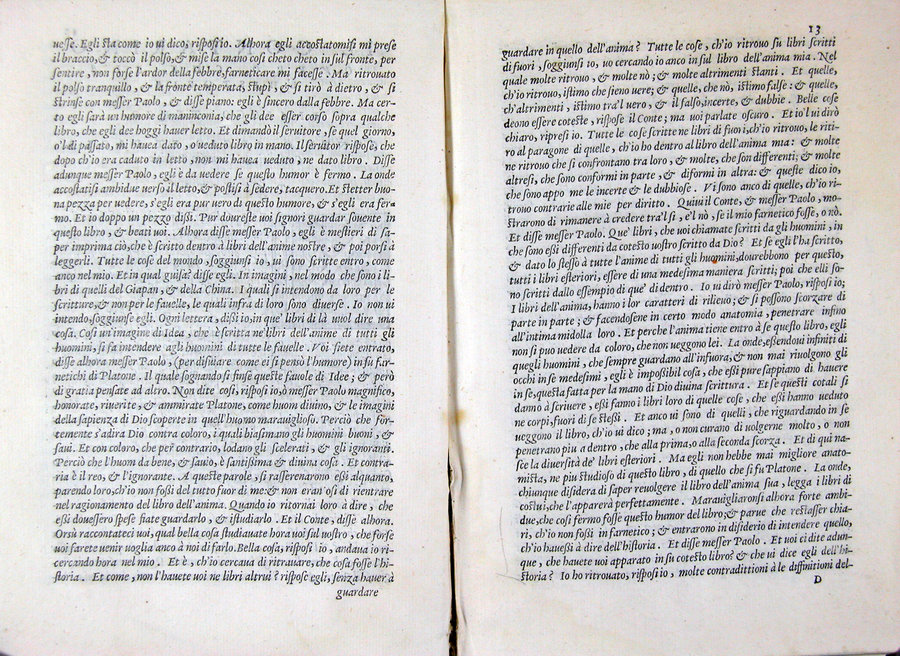 uesse. Egli sta come io ui dico, risposi io. Alhora egli accostatomisi mi prese
il braccio, & toccò il polso, & mise la mano così cheto cheto in sul fronte, per
sentire, non forse l'ardor della febbre, farneticare mi facesse. Ma ritrouato
il polso tranquillo, & la fronte temperata, stupì, & si tirò à dietro, & si
strinse con messer Paolo, & disse piano: egli è sincero dalla febbre. Ma cer-
to egli sarà un humore di maninconia, che gli dee esser corso sopra qualche
libro, che egli dee hoggi hauer letto. Et dimandò il seruitore, se quel giorno,
o'l dì passato, mi hauea dato, o ueduto libro in mano. Il seruitor rispose, che
dopo ch'io era caduto in letto, non mi hauea ueduto, ne dato libro. Disse
adunque messer Paolo, egli è da uedere se questo humor è fermo. La onde
accostatisi ambidue uerso il letto, & postisi à sedere, tacquero. Et stetter buo-
na pezza per uedere, s'egli era pur uero di questo humore, & s'egli era fer-
mo. Et io doppo un pezzo dißi. Pur doureste uoi signori guardar souente in
questo libro, & beati uoi. Alhora disse messer Paolo, egli è mestieri di sa-
per imprima ciò, che è scritto dentro à libri dell'anime nostre, & poi porsi à
leggerli. Tutte le cose del mondo, soggiunsi io, ui sono scritte entro, come
anco nel mio. Et in qual guisa? disse egli. In imagini, nel modo che sono i li-
bri di quelli del Giapan, & della China. I quali si intendono da loro per le
scritture, & non per le fauelle, le quali infra di loro sono diuerse. Io non ui
intendo, soggiunse egli. Ogni lettera, dißi io, in que' libri di là uuol dire una
cosa. Così un'imagine di idea, che è scritta ne' libri dell'anime di tutti gli
huomini, si fa intendere agli huomini di tutte le fauelle. Voi siete entrato,
disse alhora messer Paolo, (per disuiare come ei si pensò l'humore) in su far-
netichi di Platone. Il quale sognando si finse queste fauole di Idee; & però
di gratia pensate ad altro. Non dite così, risposi io, ò messer Paolo magnifico,
honorate, riuerite, & ammirate Platone, come huom diuino, & le imagini
della sapienza di Dio scoperte in quell'huomo marauiglioso. Perciò che for-
temente s'adira Dio contra coloro, i quali biasimano gli huomini buoni, &
saui. Et con coloro, che per contrario, lodano gli scelerati, & gli ignoranti.
Perciò che l'huom da bene, & sauio, è santißima & diuina cosa. Et contra-
ria è il reo, & l'ignorante. A queste parole, si rasserenarono eßi alquanto,
parendo loro, ch'io non foßi del tutto fuor di me: & non eran'osi di rientrare
nel ragionamento del libro dell'anima. Quando io ritornai loro à dire, che
eßi douessero spese fiate guardarlo, & istudiarlo. Et il Conte, disse alhora.
Orsù raccontateci uoi, qual bella cosa studiauate hora uoi sul nostro, che forse
uoi farete uenir uoglia anco à noi di farlo. Bella cosa, risposi io, andaua io ri-
cercando hora nel mio. Et è, ch'io cercaua di ritrauare, che cosa fosse l'hi-
storia. Et come, non l'hauete uoi ne libri altrui? rispose egli, senza hauer à
guardare
13
guardare in quello dell'anima? Tutte le cose, ch'io ritrouo su libri scritti
di fuori, soggiunsi io, uo cercando io anco in sul libro dell'anima mia. Nel
quale molte ritrouo, & molte nò; & molte altrimenti stanti. Et quelle,
ch'io ritrouo, istimo che sieno uere; & quelle, che nò, istimo false: & quelle,
ch'altrimenti, istimo tra'l uero, & il falso, incerte, & dubbie. Belle cose
deono essere coteste, rispose il Conte; ma uoi parlate oscuro. Et io l ui dirò
chiaro, ripresi io. Tutte le cose scritte ne libri di fuori, ch'io ritrouo, le riti-
ro al paragone di quelle, ch'io ho dentro al libro dell'anima mia: & molte
ne ritrouo che si confrontano tra loro, & molte, che son differenti; & molte
altresi, che sono conformi in parte, & diformi in altra: & queste dico io,
che sono appo me le incerte & le dubbiose. Vi sono anco di quelle, ch'io ri-
trouo contrarie alle mie per diritto. Quiui il Conte, & messer Paolo, mo-
strarono di rimanere à credere tra'l sì, e'l nò, se il mio farnetico fosse, o nò.
Et disse messer Paolo. Que' libri, che uoi chiamate scritti da gli huomini, in
che sono eßi differenti da cotesto uostro scritto da Dio? Et se egli l'ha scritto,
& dato lo stesso à tutte l'anime di tutti gli huomini, dourebbono per questo,
tutti i libri esteriori, essere di una medesima maniera scritti; poi che elli so-
no scritti dallo essempio di que' di dentro. Io uu dirò messer Paolo, risposi io;
I libri dell'anima, hanno i lor caratteri di rilieuo; & si possono scorzare di
parte in parte; & facendosene in certo modo anatomia, penetrare infino
all'intima midolla loro. Et perche l'anima tiene entro à se questo libro, egli
non si puo uedere da coloro, che non ueggono lei. La onde, essendoui infiniti di
quegli huomini, che sempre guardano all'infuora, & non mai riuolgono gli
occhi in se medesimi, egli è impoßibil cosa, che eßi pure sappiano di hauere
in se, questa fatta per la mano di Dio diuina scrittura. Et se questi cotali si
danno à scriuere, eßi fanno i libri loro di quelle cose, che eßi hanno ueduto
ne corpi, fuori di se steßi. Et anco ui sono di quelli, che riguardando in se
ueggono il libro, ch'io ui dico; ma, o non curano di uolgerne molto, o non
penetrano piu a dentro, che alla prima, o alla seconda scorza. Et di quì na-
sce la diuersità de' libri esteriori. Ma egli non hebbe mai migliore anato-
mista, ne piu studioso di questo libro, di quello che si fu Platone. La onde,
chiunque disidera di saper reuolgere il libro dell'anima sua, legga i libri di
costui, che l'apparerà perfettamente. Marauigliaronsi alhora forte ambi-
due, che così fermo fosse questo humor del libro; & parue che restasser chia-
ri, ch'io non foßi in farnetico; & entrarono in disiderio di intendere quello,
ch'io haueßi à dire dell'historia. Et disse messer Paolo. Et uoi ci dite adun-
que, che hauete uoi apparato in su cotesto libro? & che ui dice egli dell'hi-
storia? Io ho ritrouato, risposi io, molte contradittioni à le diffinitioni del-
D